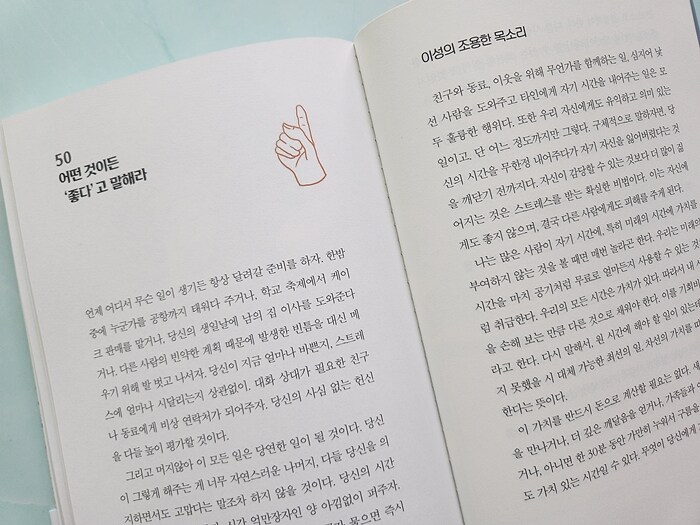 50
어떤 것이든
‘좋다’고 말해라
언제 어디서 무슨 일이 생기든 항상 달려갈 준비를 하자. 한밤
중에 누군가를 공항까지 태워다 주거나, 학교 축제에서 케이
크 판매를 맡거나, 당신의 생일날에 남의 집 이사를 도와준다
거나, 다른 사람의 빈약한 계획 때문에 발생한 빈틈을 대신 메
우기 위해 발 벗고 나서자. 당신이 지금 얼마나 바쁜지, 스트레
스에 얼마나 시달리는지 상관없이, 대화 상대가 필요한 친구
나 동료에게 비상 연락처가 되어주자. 당신의 사심 없는 헌신
을 다들 높이 평가할 것이다.
그리고 머지않아 이 모든 일은 당연한 일이 될 것이다. 당신
이 그렇게 해주는 게 너무 자연스러운 나머지, 다들 당신을 의
지하면서도 고맙다는 말조차 하지 않을 것이다. 당신의 시간
시간 억만장자인 양 아낌없이 퍼주자.
물으면 즉시
이성의 조용한 목소리
친구와 동료, 이웃을 위해 무언가를 함께하는 일, 심지어 낯
선 사람을 도와주고 타인에게 자기 시간을 내어주는 일은 모
두 훌륭한 행위다. 또한 우리 자신에게도 유익하고 의미 있는
일이고. 단 어느 정도까지만 그렇다. 구체적으로 말하자면, 당
신의 시간을 무한정 내어주다가 자기 자신을 잃어버렸다는 것
을 깨닫기 전까지다. 자신이 감당할 수 있는 것보다 더 많이 짊
어지는 것은 스트레스를 받는 확실한 비법이다. 이는 자신에
게도 좋지 않으며, 결국 다른 사람에게도 피해를 주게 된다.
나는 많은 사람이 자기 시간에, 특히 미래의 시간에 가치를
부여하지 않는 것을 볼 때면 매번 놀라곤 한다. 우리는 미래의
시간을 마치 공기처럼 무료로 얼마든지 사용할 수 있는 것
럼 취급한다. 우리의 모든 시간은 가치가 있다. 따라서 내 시
을 손해 보는 만큼 다른 것으로 채워야 한다. 이를 기회비
라고 한다. 다시 말해서, 원 시간에 해야 할 일이 있는데
지 못했을 시 대체 가능한 최선의 일, 차선의 가치를 따
한다는 뜻이다.
이 가치를 반드시 돈으로 계산할 필요는 없다. 새
을 만나거나, 더 깊은 깨달음을 얻거나, 가족들의
거나, 아니면 한 30분 동안 가만히 누워서 구름을
도 가치 있는 시간일 수 있다. 무엇이 당신에게